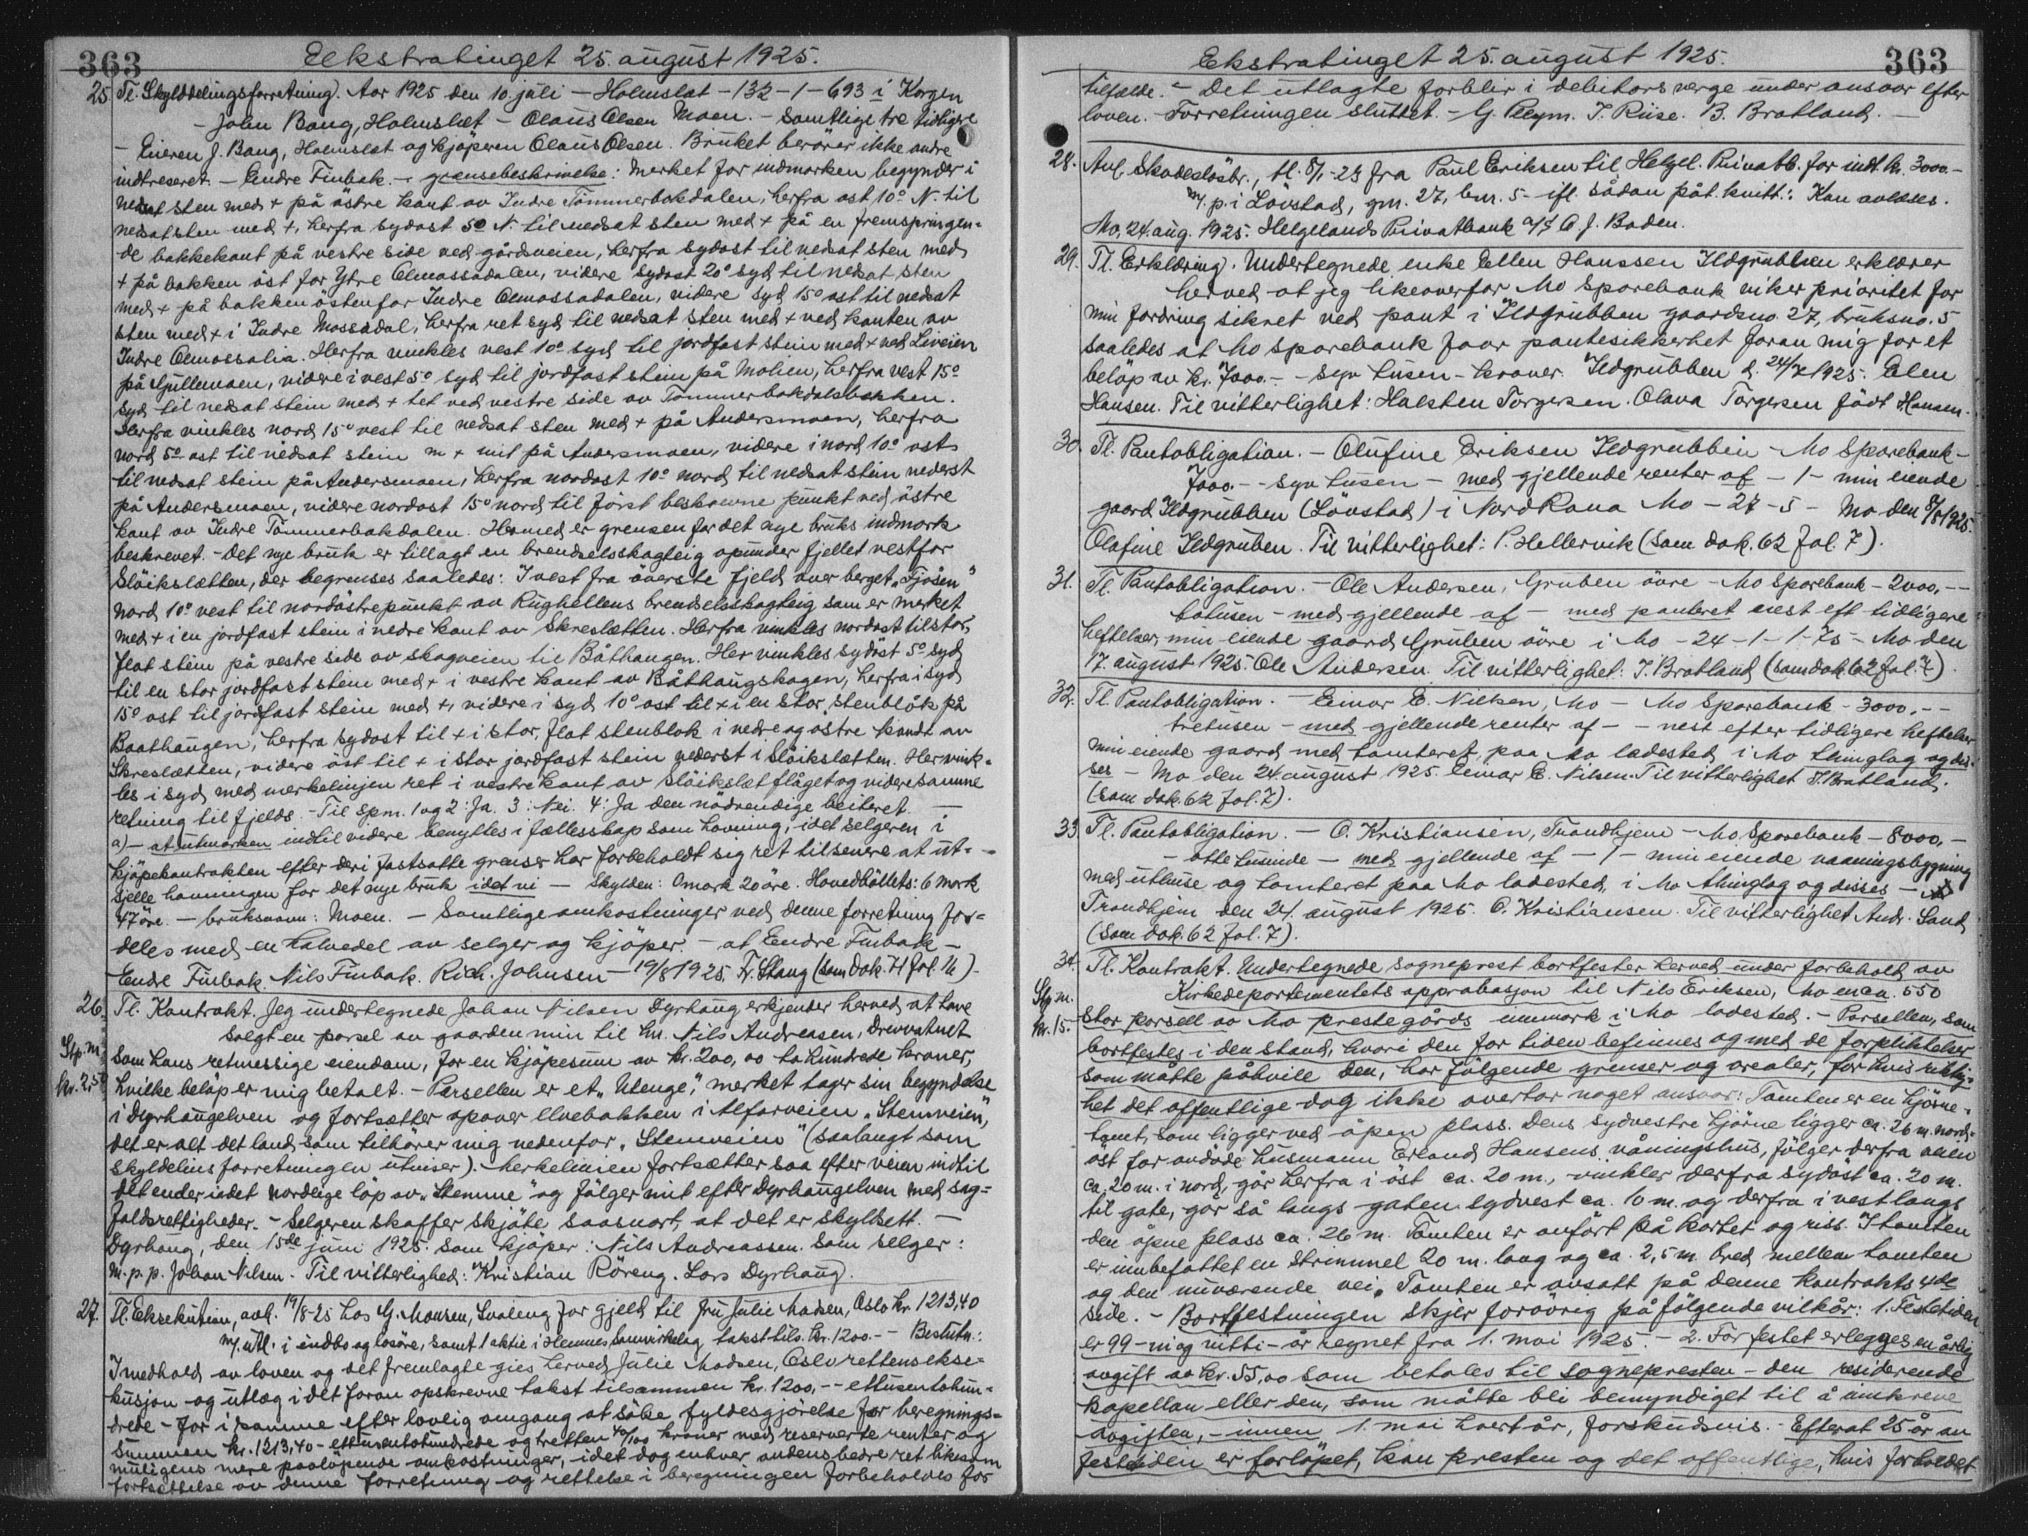 363 Eekstratinget 25. august 1925.
25. Tl. Skylddelingsforretning. Aar 1925 den 10 juli – Holmslæt – 132 – 1 – 693 i Korgen
– John Bang, Holmslæt – Olaus Olsen Moen. – Samtlige tre tidligere
– Eieren J. Bang, Holmslæt og kjøperen Olaus Olsen. Bruket berører ikke andre
indtreseret. – Endre Finbak. – grensebeskrivelse: Merket for indmarken begynder i
nedsat sten med + på østre kant av Indre Tømmerbakdalen, herfra ost 10° N. til
nedsat sten med +, herfra sydost 5° N. til nedsat sten med + på en fremspringen-
de bakkekant på vestre side ved gårdsveien, herfra sydost til nedsat sten med
+ på bakken øst for Ytre Olmossadalen, videre sydost 20° syd til nedsat sten
med + på bakken østenfor Indre Olmossadalen, videre syd 15° ost til nedsat
sten med + i Indre Mossadal, herfra ret syd til nedsat sten med + ved kanten av
Indre Olmossalia. Herfra vinkles vest 10° syd til jordfast stein med + ved Liveien
på Gullemoen, videre i vest 5° syd til jordfast stein på Molien, herfra vest 15°
syd til nedsat stein med + tet ved vestre side av Tømmerbakdalsbakken.
Herfra vinkles nord 15° vest til nedsat sten med + på Andersmoen, herfra
nord 5° ost til nedsat stein m + mit på Andersmoen, videre i nord 10° ost
til nedsat stein på Andersmoen, herfra nordost 10° nord til nedsat stein nederst
på Andersmoen, videre nordost 15° nord til først beskrevne punkt ved østre
kant av Indre Tømmerbakdalen. Hermed er grensen for det nye bruks indmark
beskrevet. – Det nye bruk er tillagt en brendselsskogteig opunder fjellet vestfor
Sløikslætten, der begrenses saaledes: I vest fra øverste fjeld over berget „Fjøsen"
nord 10° vest til nordøstre punkt av Rughellens brendselsskogteig som er merket
med + i en jordfast stein i nedre kant av Skreslætten. Herfra vinkles nordost til stor,
flat stein på vestre side av skogveien til Båthaugen. Her vinkles sydøst 5° syd
til en stor jordfast stein med + i vestre kant av Båthaugskogen, herfra i syd
15° ost til jordfast stein med +, videre i syd 10° ost til + i en stor stenblok på
Baathaugen, herfra sydost til + i stor, flat stenblok i nedre og østre kandt av
Skreslætten, videre øst til + i stor jordfast stein nederst i Sløikslætten. Her vink-
les i syd med merkelinjen ret i vestre kant av Sløikslætflåget og videre samme
retning til fjelds. – Til spm. 1 og 2: Ja. 3: Nei. 4: Ja den nødvendige beiteret. –
a) – at utmarken indtil videre benyttes i fællesskap som havning, idet selgeren i
kjøpekontrakten efter deri fastsatte grenser har forbeholdt sig ret til senere at ut-
skjelle havningen for det nye bruk idet vi – Skylden: 0 mark 20 øre. Hovedbølets: 6 mark
47 øre. – bruksnavn: Moen. – Samtlige omkostninger ved denne forretning for-
deles med en halvedel av selger og kjøper. – at Endre Finbak –
Endre Finbak Nils Finbak. Rich. Johnsen – 19/8 1925. Fr. Stang (som dok. 71 fol. 16).
26. Tl. Kontrakt. Jeg undertegnede Johan Nilsen Dyrhaug erkjender herved at have
solgt en parsel av gaarden min til hr. Nils Andreasen, Drevvatnet
Stp. m. som hans retmessige eiendom, for en kjøpesum av kr. 200,00 to hundrede kroner,
kr. 2,50 hvilke beløp er mig betalt. – Parsellen er et „Utenge", merket tager sin begyndelse
i Dyrhaugelven og fortsætter opover Elvebakken i Alfarveien „Stemveien",
det er alt det land som tilhører mig nedenfor „Stemveien" (saalangt som
skyldelinsforretningen utviser). Merkelinien fortsætter saa efter veien indtil
det ender i det nordlige løp av „Stemme" og følger mit efter Dyrhaugelven med sag-
foldsrettigheder. – Selgeren skaffer skjøte saasnart, at det er skyldsett. –
Dyrhaug, den 15de juni 1925. Som kjøper: Nils Andreassen. Som selger:
m. p. p. Johan Nilsen. Til vitterlighed: Kristian Røreng. Lars Dyrhaug.
27. Tl. Eksekution, avh. 19/8-25 hos G. Monsen, Svaleng for gjeld til fru Julie Madsen, Oslo kr. 1213,40
m/ utl. i indbo og løsøre, samt 1 aktie i Hemnes Samvirkelag, takst tils. kr. 1200.– – Beslutn.:
I medhold av loven og det fremlagte gies herved Julie Madsen, Oslo rettens ekse-
kusjon og utlæg i det foran opskrevne takst tilsammen kr. 1200, – – ettusentohun-
drede – for i samme efter lovlig omgang at søke fyldesgjørelse for beregnings-
summen kr. 1213,40 – ettusentohundrede og tretten 40/100 kroner med reserverte renter og
muligens mere paaløpende omkostninger, idet dog enhver andens bedre ret likesom
fortsettelse av denne forretning og rettelse i beregningen forbeholdes for
Ekstratinget 25. august 1925. 363
tilfælde. – Det utlagte forblir i debitors verge under ansvar efter
loven. Forretningen sluttet. – G. Pleym. T. Riise. B. Bratland. –
28. Avl. Skadesløsbr., tl. 8/1-23 fra Paul Eriksen til Helgel. Privatb. for indt. kr. 3000.–
m/ p. i Løvstad, gnr. 27, bnr. 5 – ifl. sådan påt. kvitt.: Kan avlæses.
Mo, 24. aug. 1925. Helgelands Privatbank a/s C. J. Boden.
29. Tl. Erklæring. Undertegnede enke Ellen Hanssen Ildgrubben erklærer
herved at jeg likeoverfor Mo Sparebank viker prioritet for
min fordring sikret ved pant i Ildgrubben gaardsno. 27, bruksno. 5
saaledes at Mo Sparebank faar pantesikkerhet foran mig for et
beløp av kr. 7000.– – syv tusen – kroner. Ildgrubben d. 24/7 1925. Elen
Hansen. Til vitterlighet: Halsten Torgersen. Olava Torgersen født Hansen.
30. Tl. Pantobligation. – Olufine Eriksen Ildgrubben – Mo Sparebank –
7000.– – syv tusen – med gjellende renter af – 1 – min eiende
gaard Ildgrubben (Løvstad) i Nord Rana Mo – 27 – 5 – Mo den 8/8 1925.
Olafine Ildgruben. Til vitterlighet: P. Hellervik (Som dok. 62 fol. 7).
31. Tl. Pantobligation. – Ole Andersen, Gruben øvre – Mo Sparebank – 2000,– –
totusen – med gjellende af – med panteret nest eft tidligere
heftelser, min eiende gaard Gruben øvre i Mo – 24 – 1 – 1 – 75 – Mo den
17. august 1925. Ole Andersen. Til vitterlighet: J. Bratland (som dok. 62 fol. 7).
32. Tl. Pantobligation. – Einar E. Nilsen, Mo – Mo Sparebank – 3000.– –
tretusen – med gjellende renter af – – nest efter tidligere heftelser
min eiende gaard med tomteret paa Mo ladested i Mo thinglag og dis-
ses – Mo den 24 august 1925. Einar E. Nilsen. Til vitterlighet H. Bratland.
(som dok. 62 fol. 7).
33. Tl. Pantobligation. – O. Kristiansen, Trondhjem – Mo Sparebank – 8000,–
– otte tusinde – med gjellende af – 1 – min eiende vaaningsbygning
med uthuse og tomteret paa Mo ladested i Mo thinglag og disses –
Trondhjem den 24. august 1925. O. Kristiansen. Til vitterlighet Andr. Sand
(Som dok. 62 fol. 7).
34. Tl. Kontrakt. Undertegnede sogneprest bortfester herved under forbehold av
Stp. m. Kirkedepartementets approbasjon til Nils Eriksen, Mo en ca. 550
kr. 15.– stor parsell av Mo prestegårds innmark i Mo ladested. – Parsellen, som
bortfestes i den stand, hvori den for tiden befinnes og med de forpliktelser
som måtte påhvile den, har følgende grenser og arealer, for hvis riktig-
het det offentlige dog ikke overtar noget ansvar: Tomten er en hjørne-
tomt, som ligger ved åpen plass. Dens sydvestre hjørne ligger ca. 26 m. nord-
øst for avdøde husmann Erland Hansens våningshus, følger derfra veien
ca. 20 m. i nord, går herfra i øst ca. 20 m., vinkler derfra sydøst ca. 20 m.
til gate, går så langs gaten sydvest ca. 10 m. og derfra i vest langs
den åpne plass ca. 26 m. Tomten er anført på kartet og riss. I tomten
er innbefattet en strimmel 20 m. lang og ca. 2,5 m. bred mellem tomten
og den nuværende vei. Tomten er avsatt på denne kontrakts 4de
side. – Bortfestningen skjer forøvrig på følgende vilkår: 1. Festetiden
er 99 – ni og nitti – år regnet fra 1. mai 1925. – 2. For festet erlegges en årlig
avgift av kr. 55,00 som betales til sognepresten – den residerende
kapellan eller den, som måtte bli bemyndiget til å innkreve
avgiften, – innen 1. mai hvert år, forskudsvis. – Efterat 25 år av
festetiden er forløpet, kan presten og det offentlige, hvis forholdet